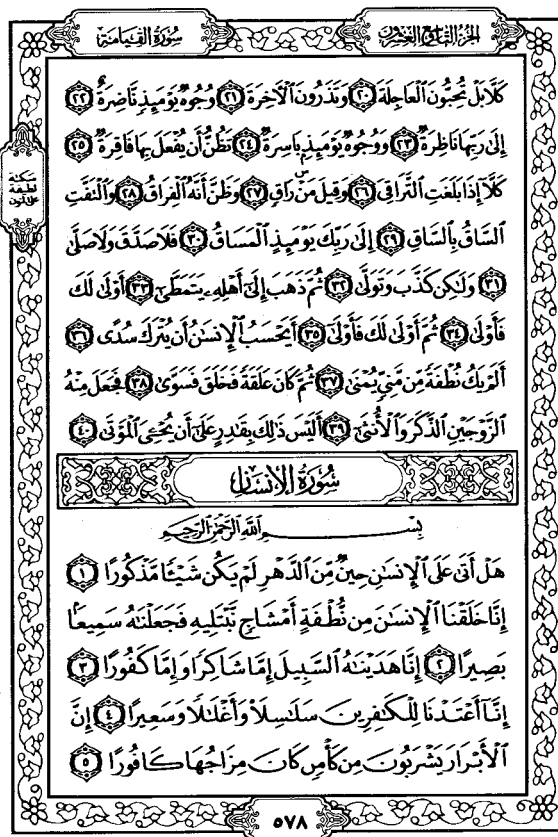 الجزء التاسع والعشرون
سورة القيامة
كَلَّا بَلْ تُحِبُّونَ ٱلْعَاجِلَةَ ٢٠ وَتَذَرُونَ ٱلْآخِرَةَ ٢١ وُجُوهٌ يَوْمَئِذٍ نَّاضِرَةٌ ٢٢
إِلَىٰ رَبِّهَا نَاظِرَةٌ ٢٣ وَوُجُوهٌ يَوْمَئِذٍۭ بَاسِرَةٌ ٢٤ تَظُنُّ أَن يُفْعَلَ بِهَا فَاقِرَةٌ ٢٥
كَلَّآ إِذَا بَلَغَتِ ٱلتَّرَاقِىَ ٢٦ وَقِيلَ مَنْ ۜ رَاقٍ ٢٧ وَظَنَّ أَنَّهُ ٱلْفِرَاقُ ٢٨ وَٱلْتَفَّتِ
ٱلسَّاقُ بِٱلسَّاقِ ٢٩ إِلَىٰ رَبِّكَ يَوْمَئِذٍ ٱلْمَسَاقُ ٣٠ فَلَا صَدَّقَ وَلَا صَلَّىٰ
٣١ وَلَٰكِن كَذَّبَ وَتَوَلَّىٰ ٣٢ ثُمَّ ذَهَبَ إِلَىٰٓ أَهْلِهِۦ يَتَمَطَّىٰٓ ٣٣ أَوْلَىٰ لَكَ
فَأَوْلَىٰ ٣٤ ثُمَّ أَوْلَىٰ لَكَ فَأَوْلَىٰٓ ٣٥ أَيَحْسَبُ ٱلْإِنسَٰنُ أَن يُتْرَكَ سُدًى ٣٦
أَلَمْ يَكُ نُطْفَةً مِّن مَّنِىٍّ يُمْنَىٰ ٣٧ ثُمَّ كَانَ عَلَقَةً فَخَلَقَ فَسَوَّىٰ ٣٨ فَجَعَلَ مِنْهُ
ٱلزَّوْجَيْنِ ٱلذَّكَرَ وَٱلْأُنثَىٰٓ ٣٩ أَلَيْسَ ذَٰلِكَ بِقَٰدِرٍ عَلَىٰٓ أَن يُحْـِۧىَ ٱلْمَوْتَىٰ ٤٠
سُورَةُ الإنسان
بِسْمِ ٱللَّهِ ٱلرَّحْمَٰنِ ٱلرَّحِيمِ
هَلْ أَتَىٰ عَلَى ٱلْإِنسَٰنِ حِينٌ مِّنَ ٱلدَّهْرِ لَمْ يَكُن شَيْـًٔا مَّذْكُورًا ١
إِنَّا خَلَقْنَا ٱلْإِنسَٰنَ مِن نُّطْفَةٍ أَمْشَاجٍ نَّبْتَلِيهِ فَجَعَلْنَٰهُ سَمِيعًۢا
بَصِيرًا ٢ إِنَّا هَدَيْنَٰهُ ٱلسَّبِيلَ إِمَّا شَاكِرًا وَإِمَّا كَفُورًا ٣
إِنَّآ أَعْتَدْنَا لِلْكَٰفِرِينَ سَلَٰسِلَا۟ وَأَغْلَٰلًا وَسَعِيرًا ٤ إِنَّ
ٱلْأَبْرَارَ يَشْرَبُونَ مِن كَأْسٍ كَانَ مِزَاجُهَا كَافُورًا ٥
٥٧٨